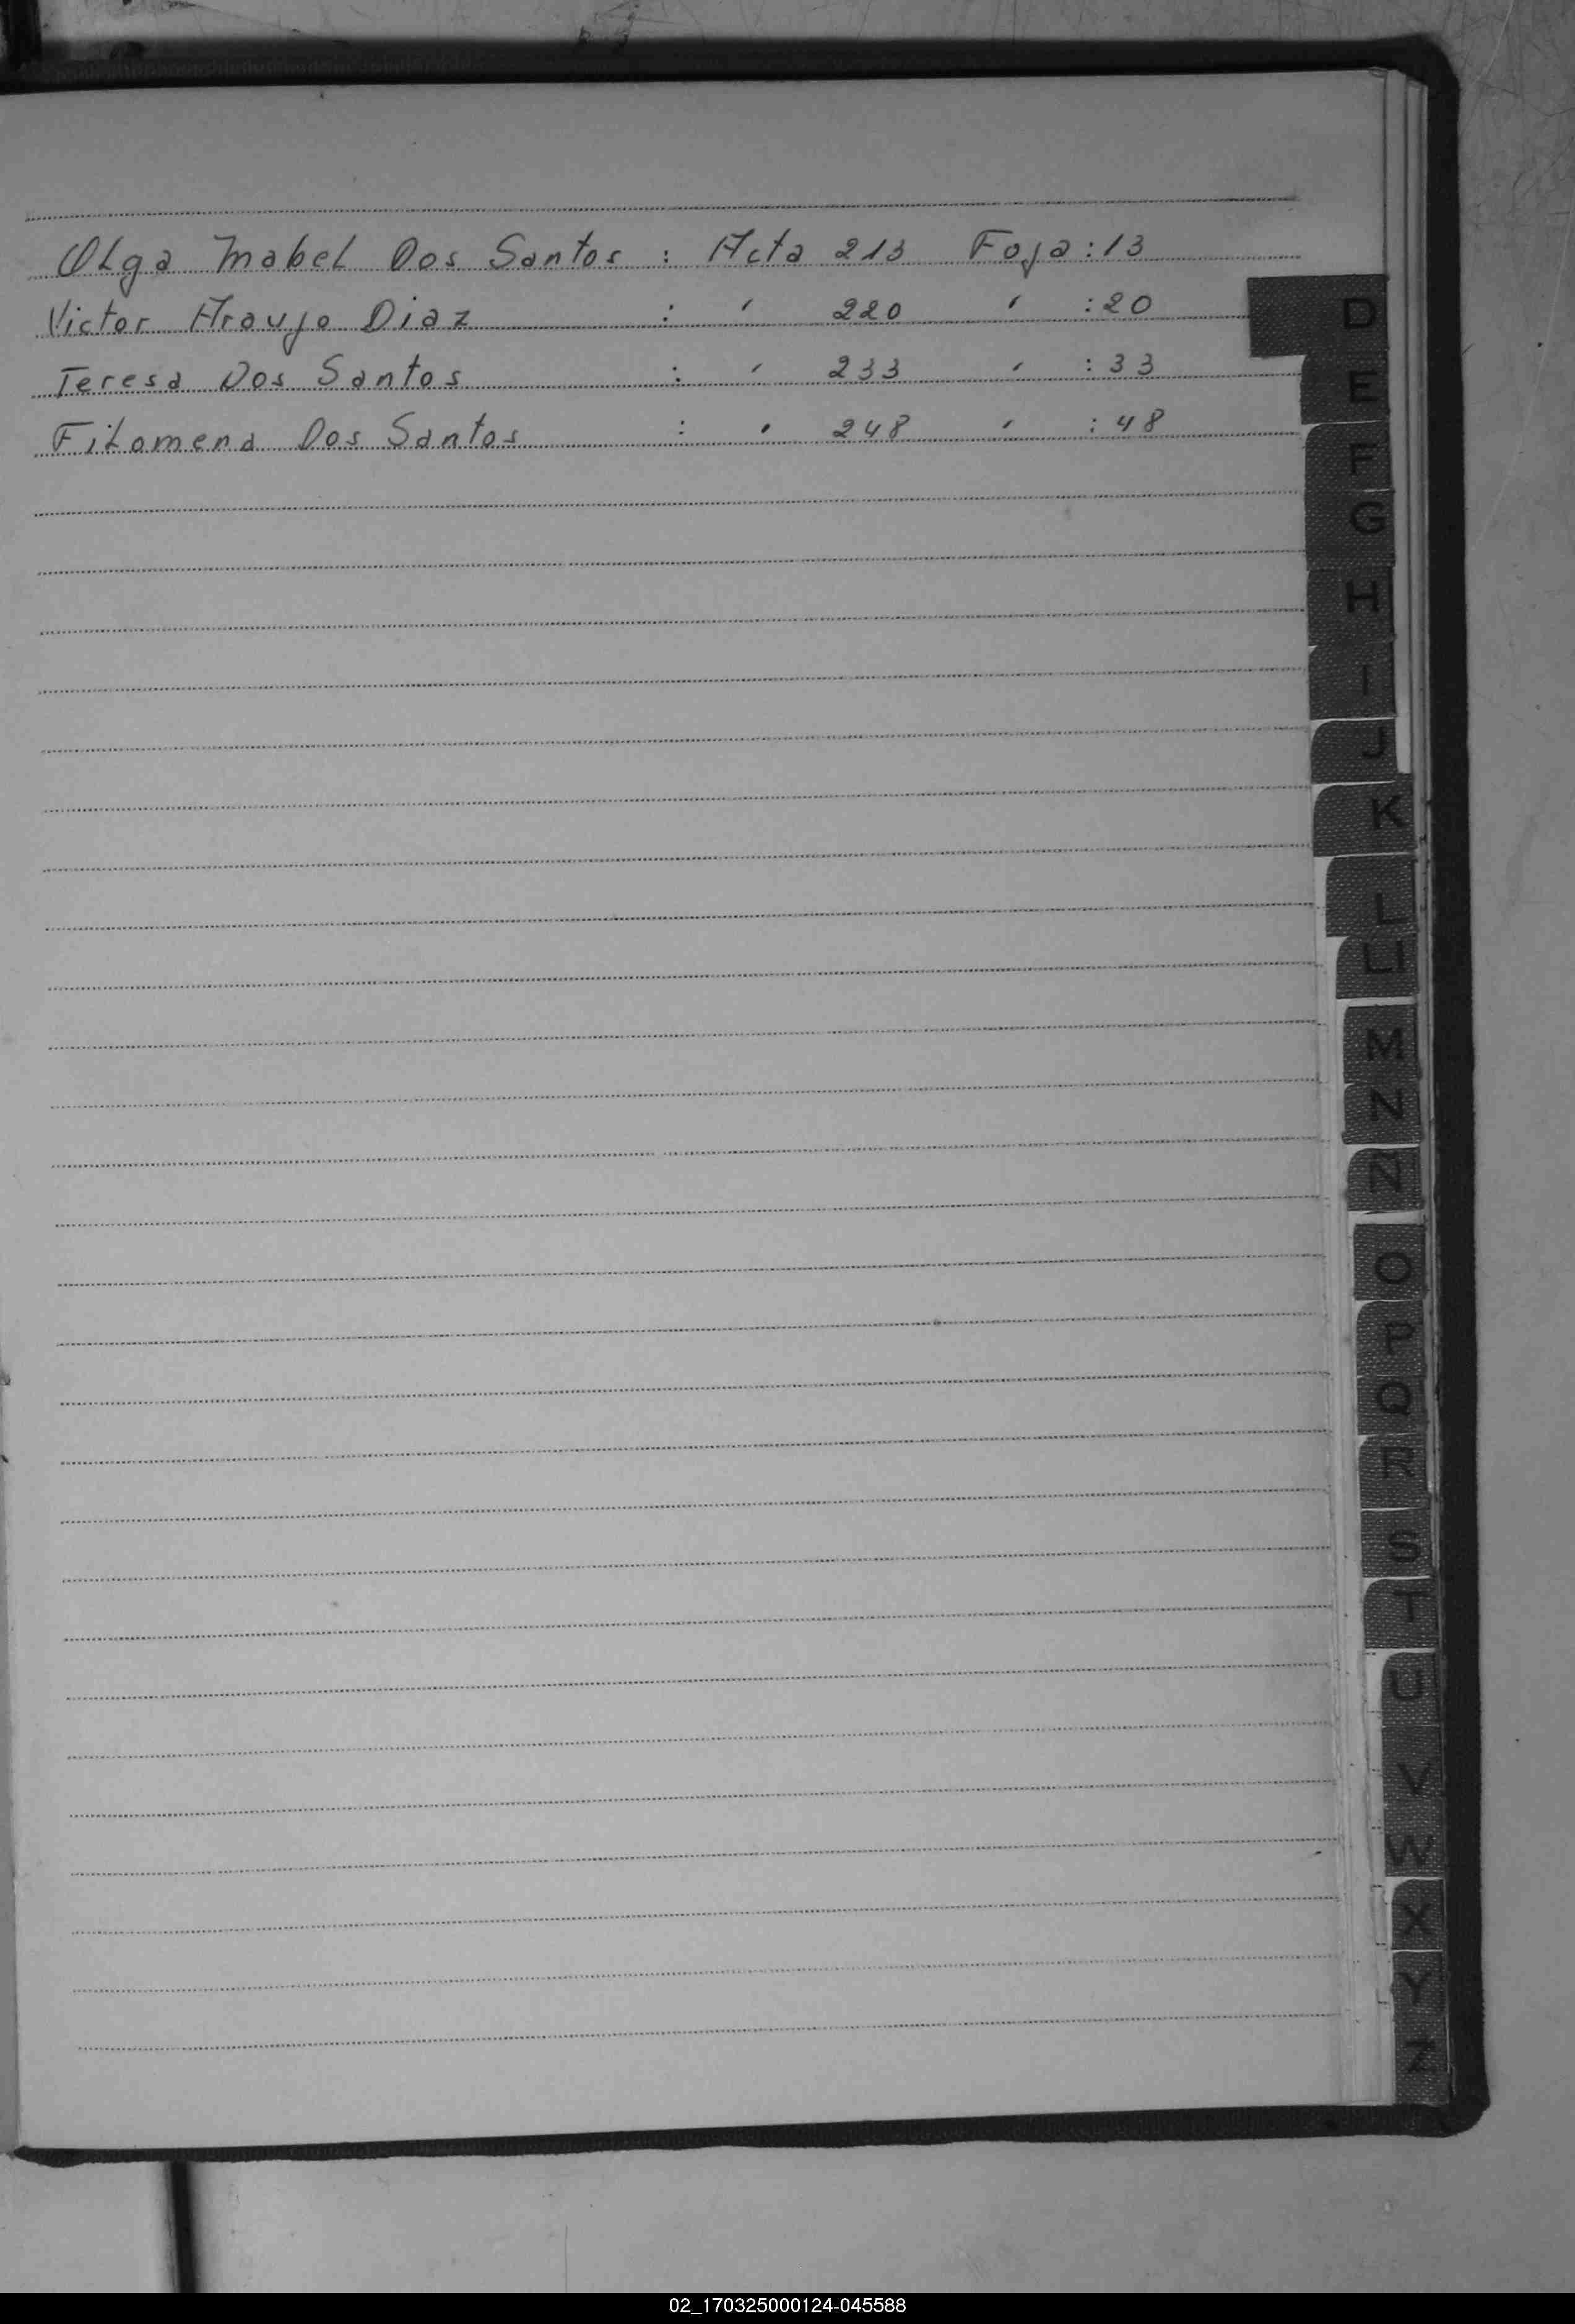 Olga Mabel Dos Santos : Acta 213 Foja : 13
Victor Araujo Diaz : ′ 220 ′ : 20
Teresa Dos Santos : ′ 233 ′ : 33
Filomena Dos Santos : ′ 248 ′ : 48
D
E
F
G
H
I
J
K
L
LL
M
N
Ñ
O
P
Q
R
S
T
U
V
W
X
Y
Z
02_170325000124-045588